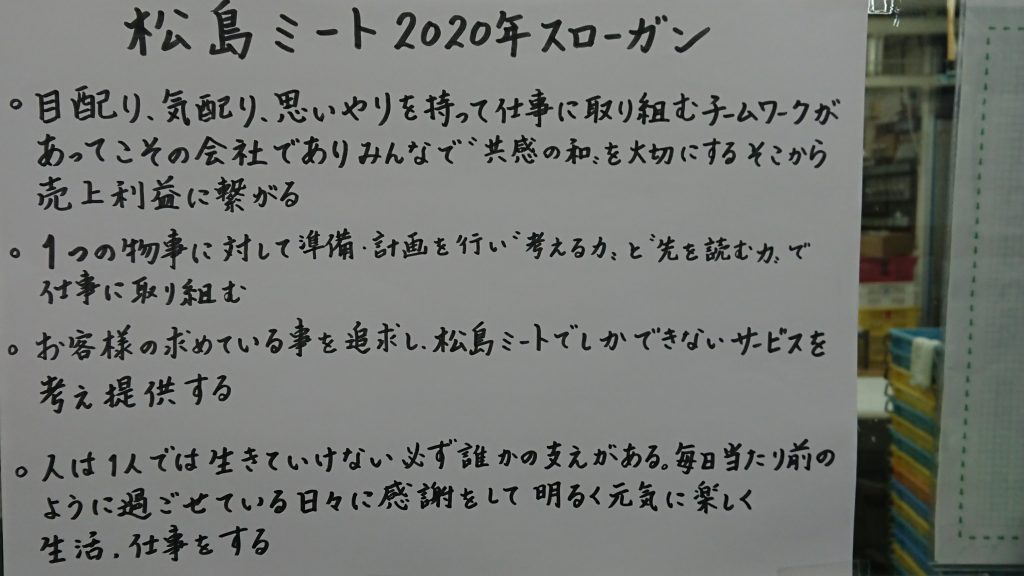 松島ミート2020年スローガン
○ 目配り、気配り、思いやりを持って仕事に取り組むチームワークが
あってこその会社でありみんなで〝共感の和〟を大切にするそこから
売上利益に繋がる
○ 1つの物事に対して準備・計画を行い〝考える力〟と〝先を読む力〟で
仕事に取り組む
○ お客様の求めている事を追求し、松島ミートでしかできないサービスを
考え提供する
○ 人は1人では生きていけない必ず誰かの支えがある。毎日当たり前の
ように過ごせている日々に感謝をして明るく元気に楽しく
生活、仕事をする